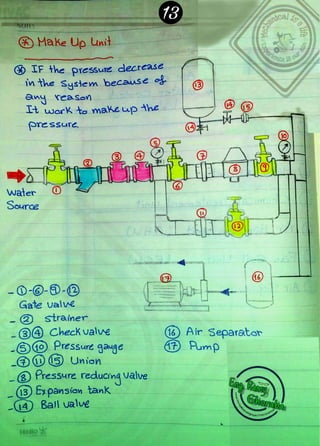 13
Make Up Unit
IF the pressure decrease
in the System because of
any reason
It work to make up the
pressure.
13
14
15
14
5
10
2
3
4
7
8
9
1
6
water
Source
11
12
17
16
- 1 - 6 - 9 - 12
Gate valve
- 2 strainer
- 3 4 Check valve
- 5 10 Pressure gauge
- 7 11 15 Union
- 8 Pressure reducing valve
- 13 Expansion tank
- 14 Ball valve
16 Air Separator
17 Pump
Eng. Ramy